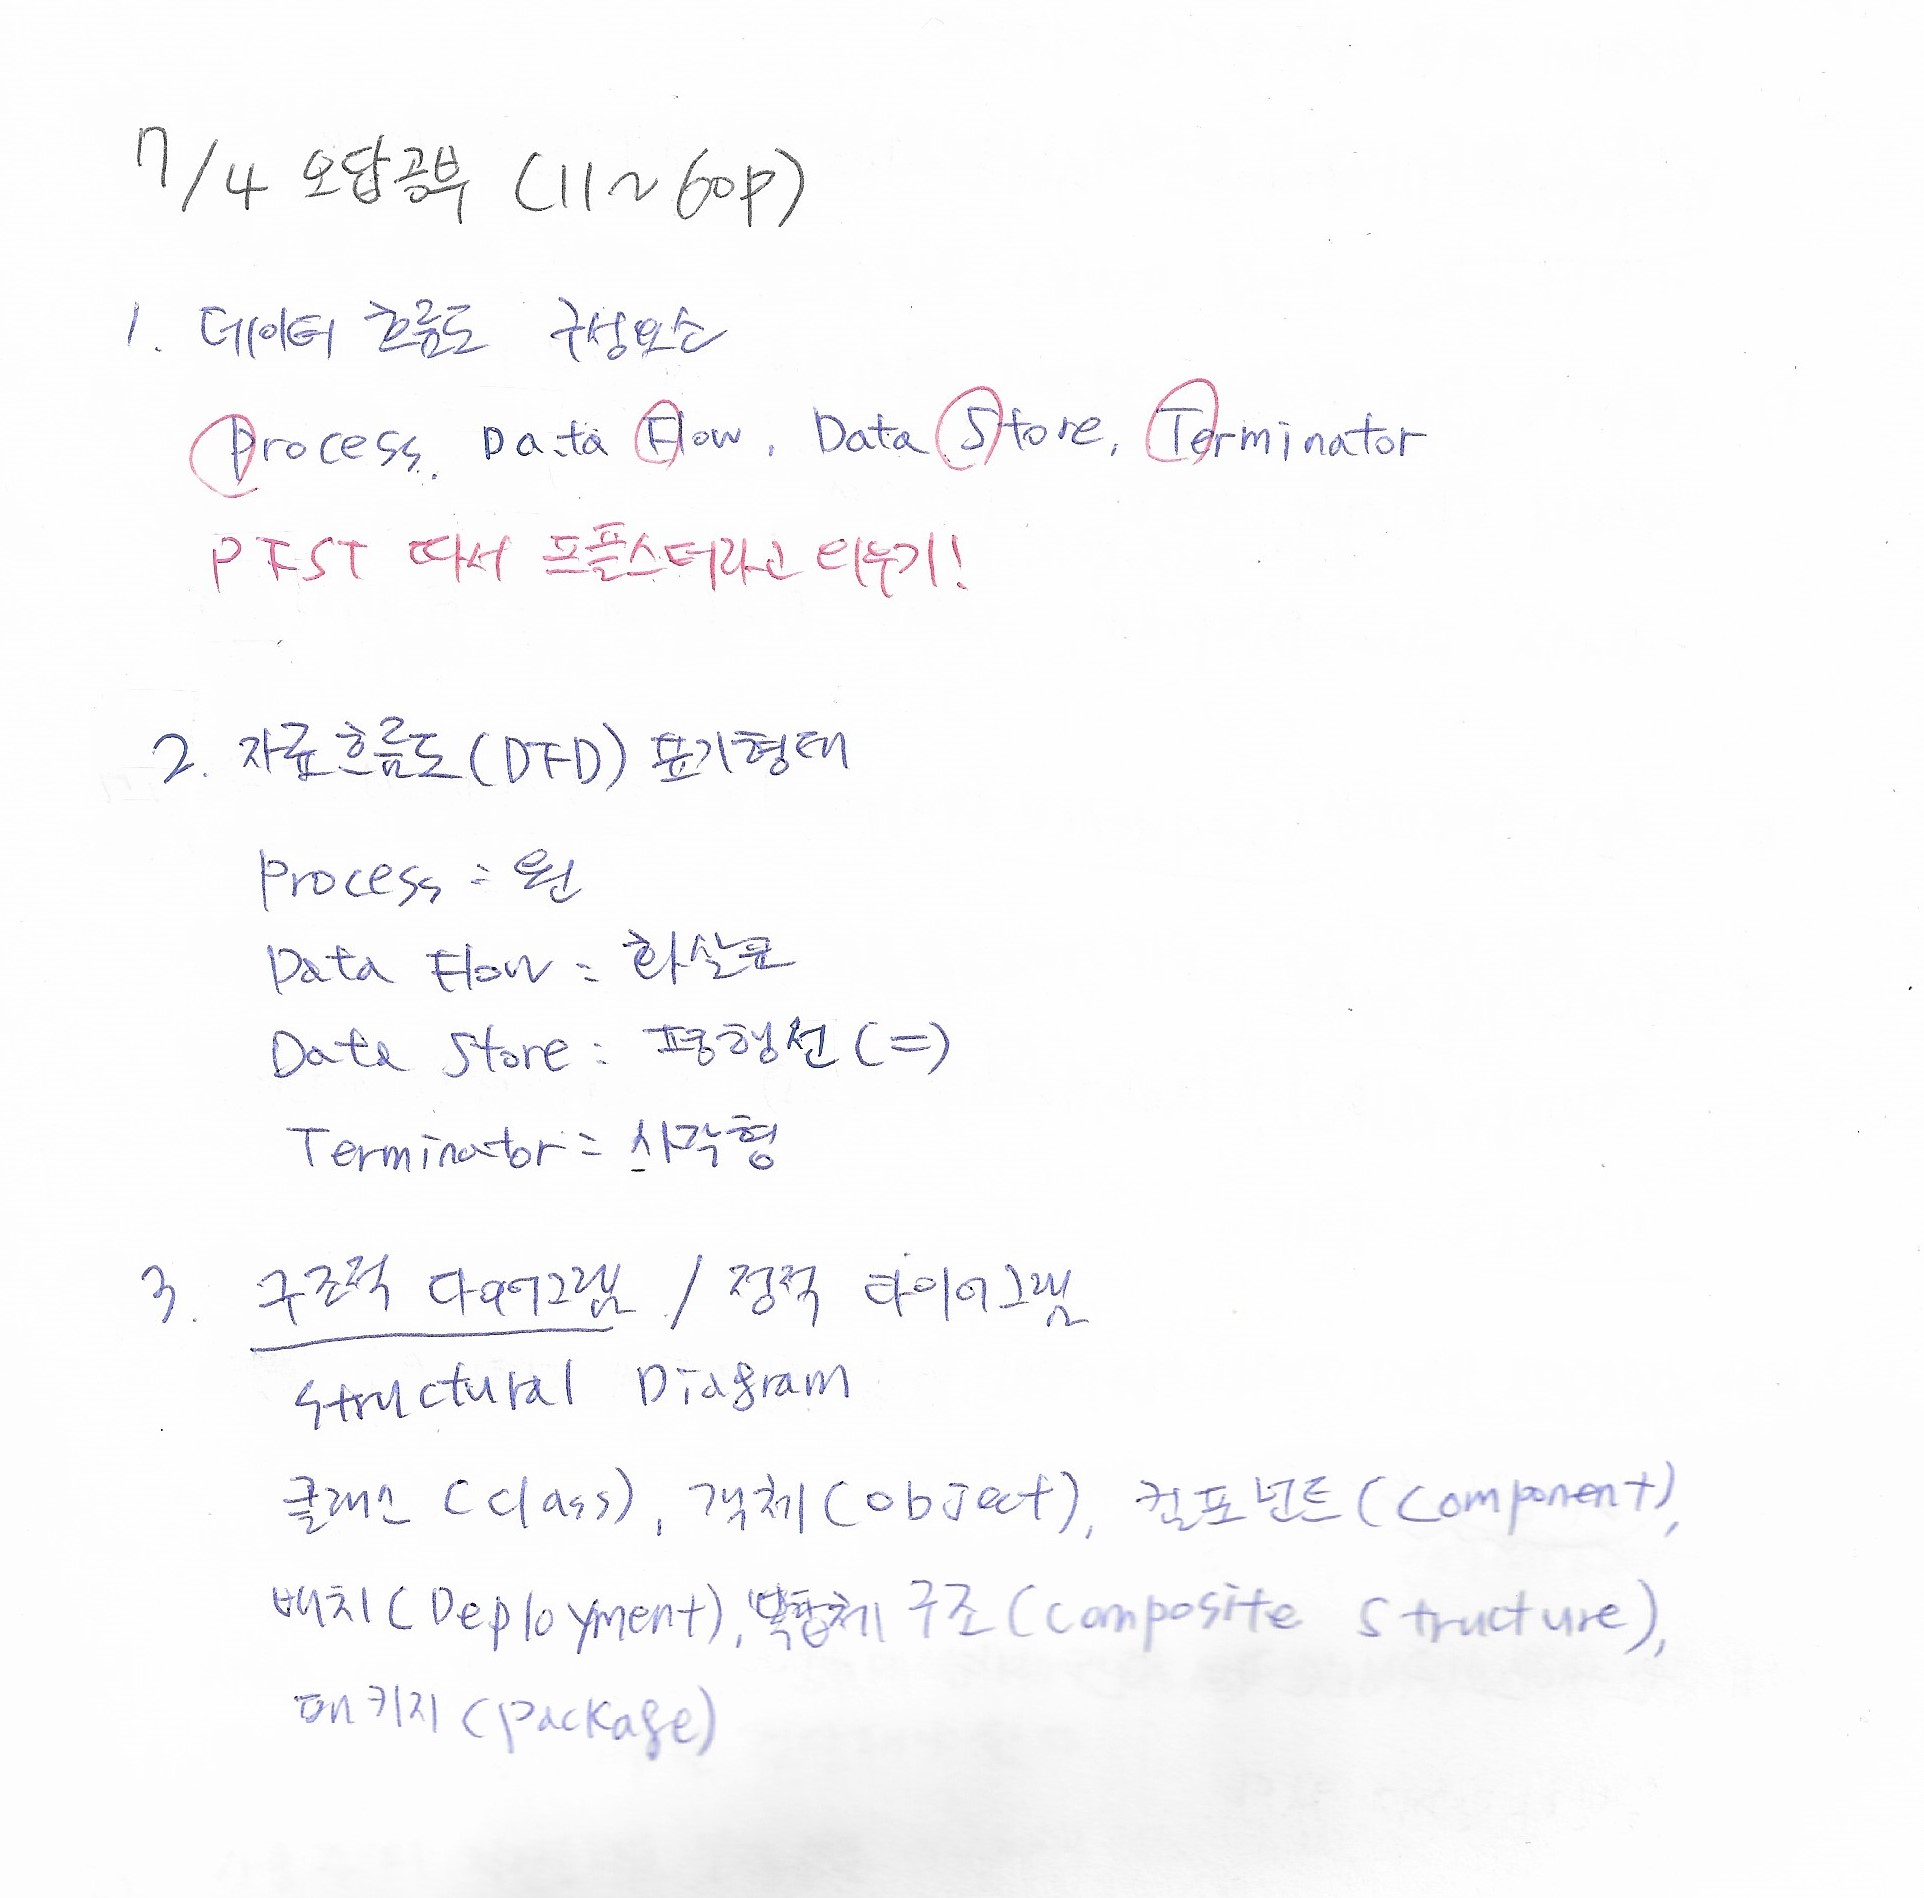 7/4 오답공부 (11~60p)
1. 데이터 흐름도 구성요소
Process, Data Flow, Data Store, Terminator
PFST 따서 프플스터라고 외우기!
2. 자료흐름도(DFD) 표기형태
Process = 원
Data Flow = 화살표
Data Store = 평행선(=)
Terminator = 사각형
3. 구조적 다이어그램 / 정적 다이어그램
Structural Diagram
클래스(Class), 객체(Object), 컴포넌트(Component),
배치(Deployment), 복합체 구조(Composite Structure),
패키지(Package)